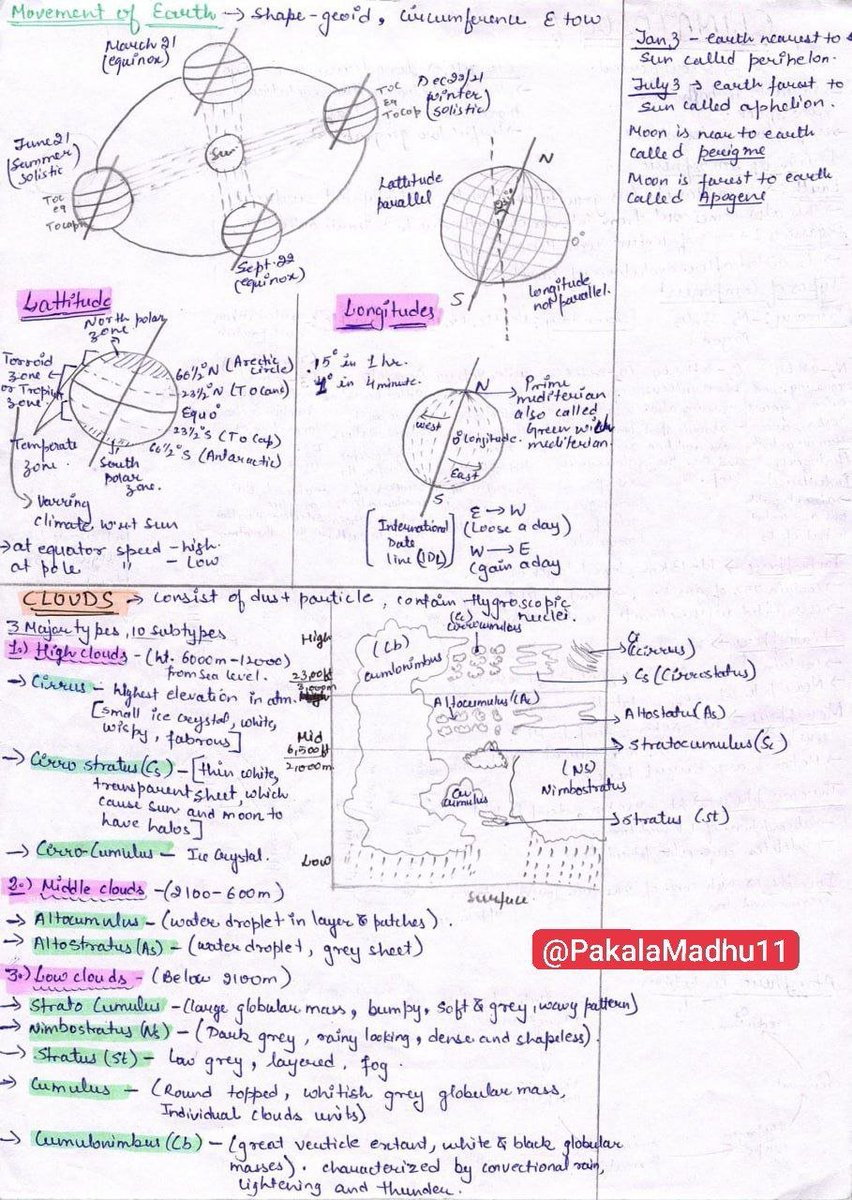 Movement of Earth → Shape-geoid, Circumference E to W
March 21
(equinox)
Dec 22/21
(Winter
Solistic)
ToC
Eq
ToCap
Sun
June 21
(Summer
Solistic
ToC
eq
ToCap
Sept. 22
(equinox)
Lattitude
parallel
N
23½°
0°
S
Longitude
not parallel.
Jan 3 - earth nearest to
sun called perihelon.
July 3 → earth farest to
sun called aphelion.
Moon is near to earth
called perigme
Moon is farest to earth
called Apogene
Lattitude
North polar
zone
Torroid
zone
or Tropical
zone
66½°N (Arectic
Circle)
23½°N (To Canc)
Equ 0°
23½°S (To Cap)
66½°S (Antaractic)
Temprate
zone.
South
polar
zone.
→ Varring
climate, w.r.t sun
→ at equator speed - high.
at pole " - Low
Longitudes
.15° in 1 hr.
1° in 4 minute.
N
Prime
mediterian
also called
Green wich
mediterian.
West
0° longitude.
East
S
[International
Date
line (IDL)]
E → W
(Loose a day)
W → E
(gain a day
CLOUDS → consist of dust particle, contain Hygroscopic
nuclei.
3 Major types, 10 subtypes
1.) High clouds - (ht. 6000m-12000)
from Sea level.
→ Cirrus - highest elevation in atm.
[small ice crystal, white,
wispy, fabrous]
→ Cirro stratus (Cs) - [thin white,
transparent sheet, which
cause sun and moon to
have halos]
→ Cirro-Cumulus - Ice Crystal.
High
23,000ft
Mid
6,500ft
2,000m
Low
(Cb)
Cumlonimbus
(Cc)
Cirrocumulus
Ci
(Cirrus)
Cs (Cirrostatus)
Altocumulus (Ac)
Altostatus (As)
Stratocumulus (Sc)
(NS)
Nimbostratus
Cu
Cumulus
Stratus (St)
Surface.
2.) Middle clouds - (2100-600m)
→ Altocumulus - (water droplet in layer & patches).
→ Altostratus (As) - (water droplet, grey sheet)
@PakalaMadhu11
3.) Low clouds - (Below 2100m)
→ Strato Cumulus - (large globular mass, bumpy, soft & grey, wavy pattern)
→ Nimbostratus (Ns) - (Dark grey, rainy looking, dense and shapeless).
→ Stratus (St) - Low grey, layered, fog.
→ Cumulus - (Round topped, whitish grey globular mass,
Individual clouds units)
→ Cumulonimbus (Cb) - (great verticle extant, white & black globular
masses). characterized by convectional rain,
lightening and thunder.